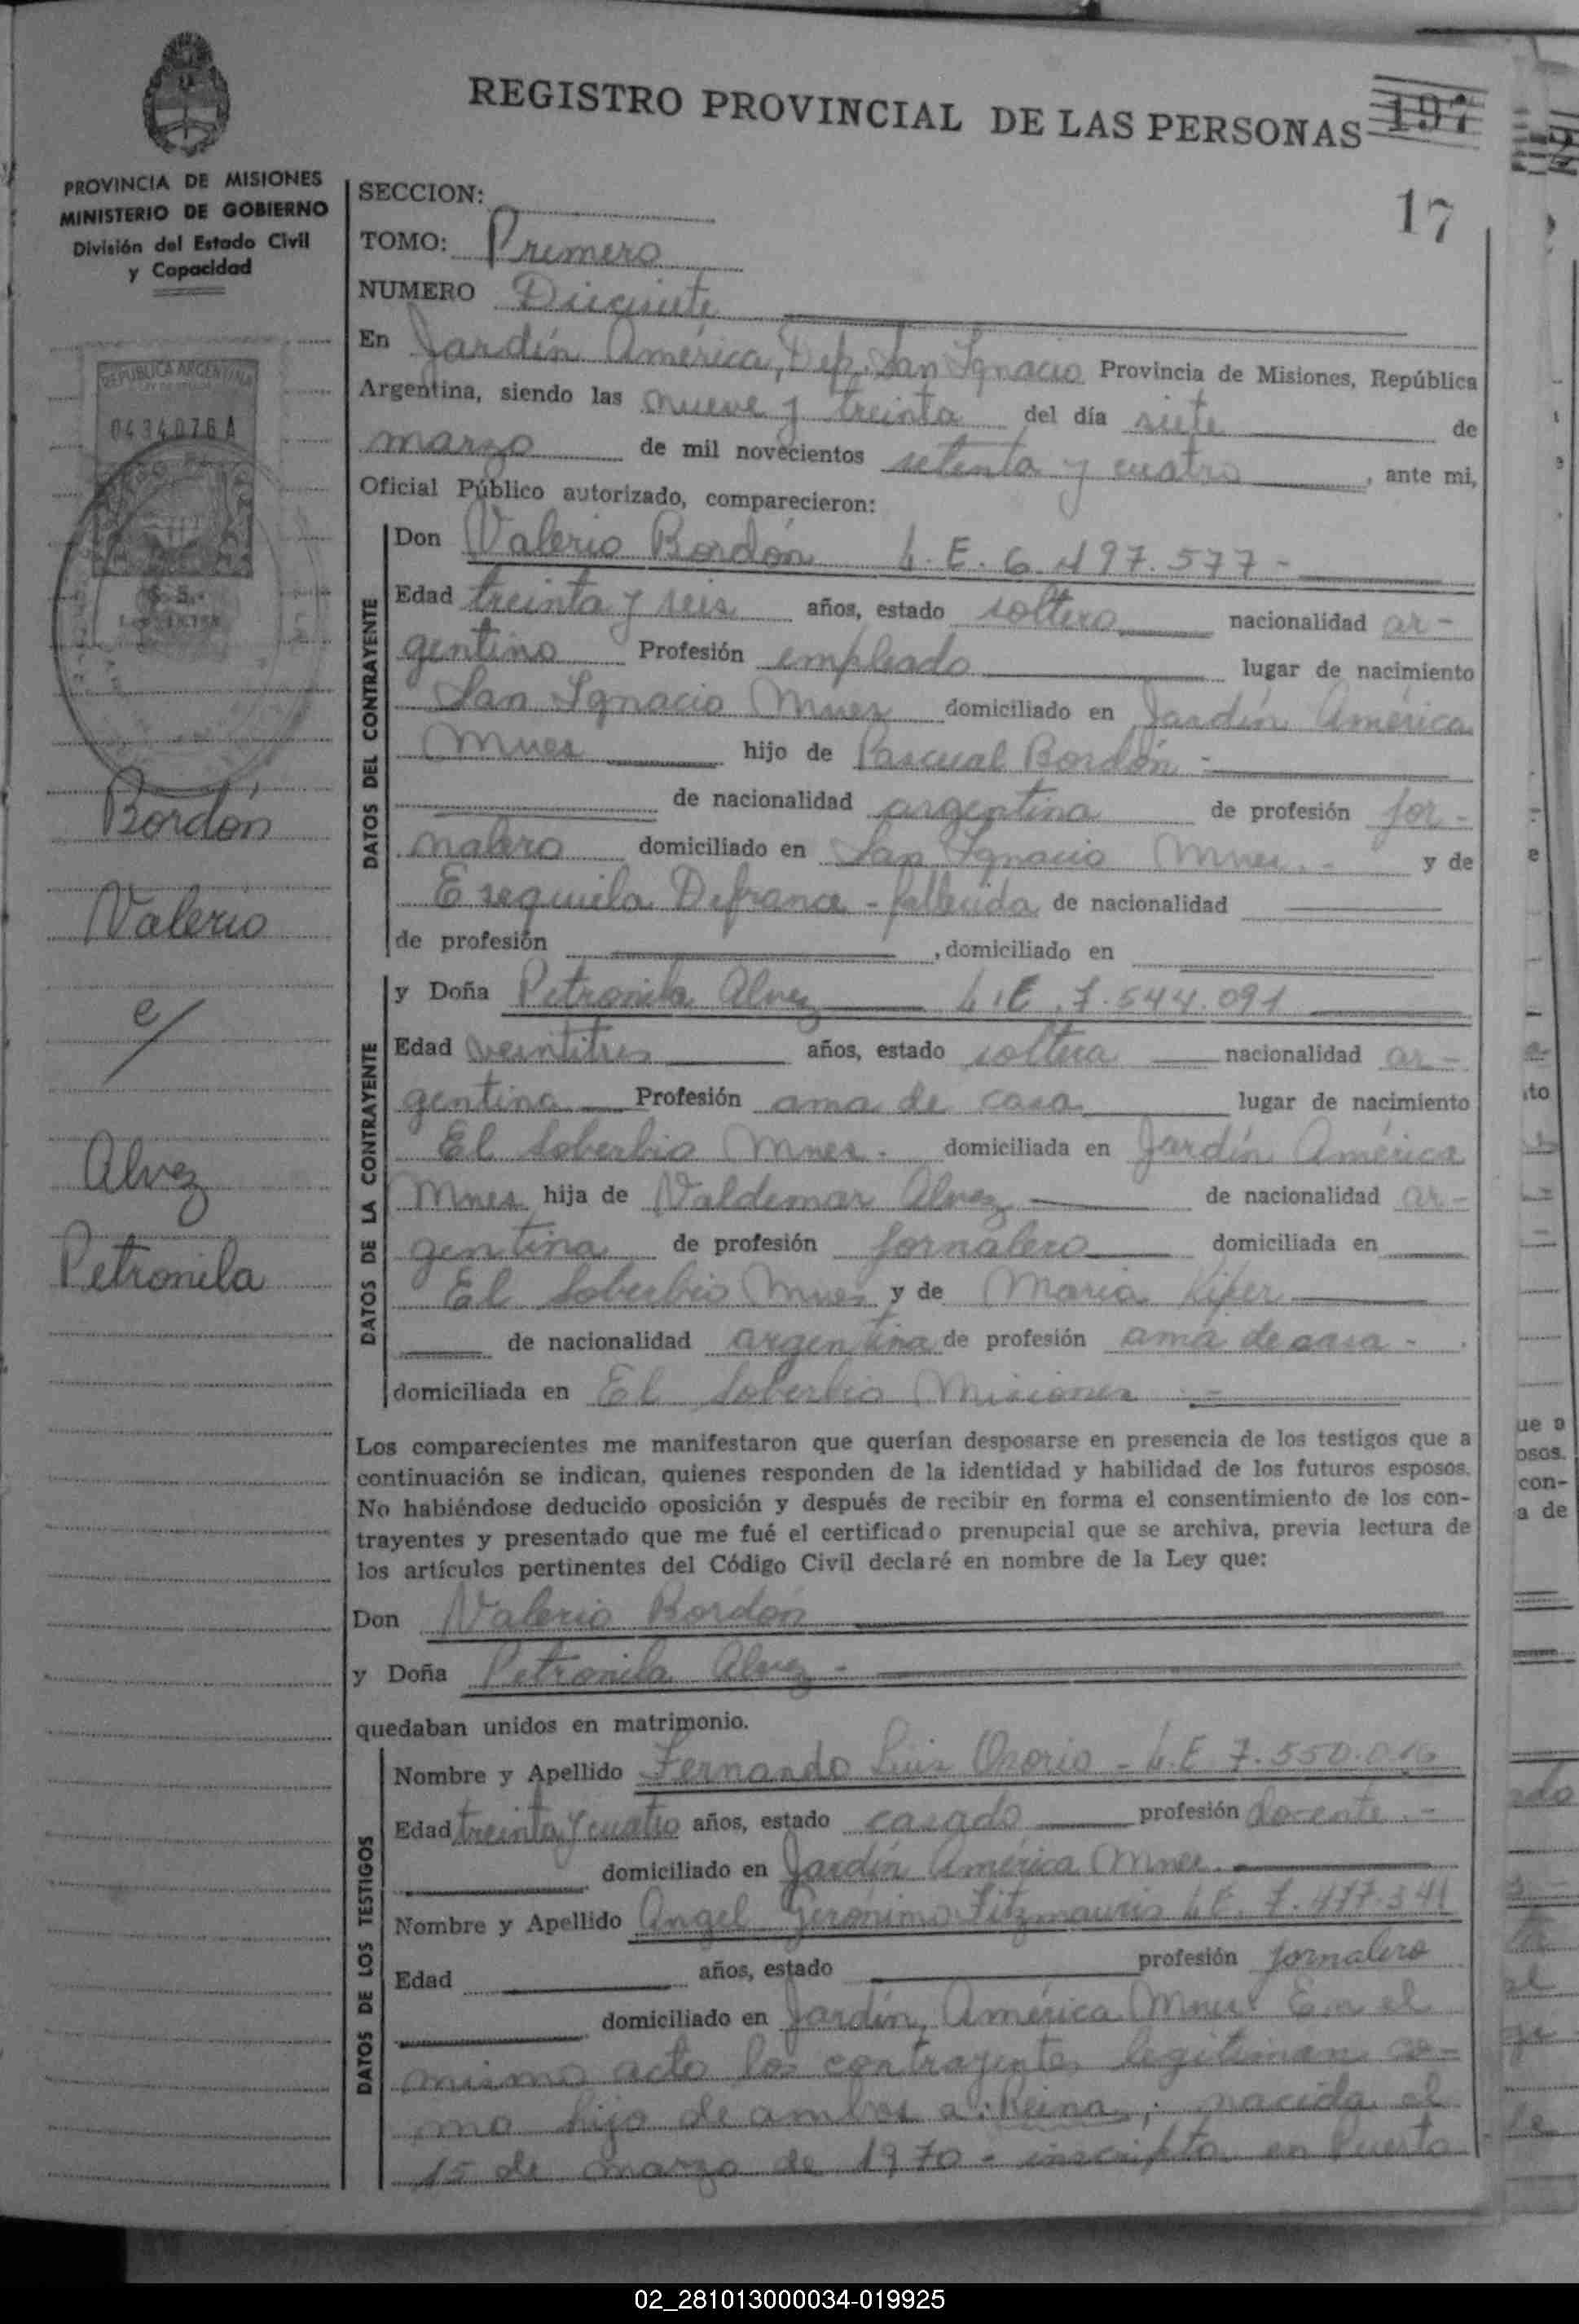 REGISTRO PROVINCIAL DE LAS PERSONAS 197
17
PROVINCIA DE MISIONES
MINISTERIO DE GOBIERNO
División del Estado Civil
y Capacidad
REPUBLICA ARGENTINA
0434076A
Bordón
Valerio
c/
Alvez
Petronila
SECCION:
TOMO: Primero
NUMERO Diecisiete
En Jardín América, Dep. San Ignacio Provincia de Misiones, República
Argentina, siendo las nueve y treinta del día siete de
marzo de mil novecientos setenta y cuatro, ante mi,
Oficial Público autorizado, comparecieron:
DATOS DEL CONTRAYENTE
Don Valerio Bordón L.E. 6.497.577-
Edad treinta y seis años, estado soltero nacionalidad ar-
gentino Profesión empleado lugar de nacimiento
San Ignacio Mnes domiciliado en Jardín América
Mnes hijo de Pascual Bordón -
de nacionalidad argentina de profesión jor-
nalero domiciliado en San Ignacio Mnes. - y de
Esequiela Defrance - fallecida de nacionalidad
de profesión , domiciliado en
DATOS DE LA CONTRAYENTE
y Doña Petronila Alvez L.E. 7.544.091
Edad veintitres años, estado soltera nacionalidad ar-
gentina Profesión ama de casa lugar de nacimiento
El Soberbio Mnes. domiciliada en Jardín América
Mnes hija de Valdemar Alvez de nacionalidad ar-
gentina de profesión jornalero domiciliada en
El Soberbio Mnes y de Maria Kiper
de nacionalidad argentina de profesión ama de casa -
domiciliada en El Soberbio Misiones -
Los comparecientes me manifestaron que querían desposarse en presencia de los testigos que a
continuación se indican, quienes responden de la identidad y habilidad de los futuros esposos.
No habiéndose deducido oposición y después de recibir en forma el consentimiento de los con-
trayentes y presentado que me fué el certificado prenupcial que se archiva, previa lectura de
los artículos pertinentes del Código Civil declaré en nombre de la Ley que:
Don Valerio Bordón
y Doña Petronila Alvez -
quedaban unidos en matrimonio.
DATOS DE LOS TESTIGOS
Nombre y Apellido Fernando Luis Osorio - L.E 7.550.016
Edad treinta y cuatro años, estado casado profesión docente. -
domiciliado en Jardín América Mnes.
Nombre y Apellido Angel Gerónimo Fitzmauris L.E. 7.477.341
Edad años, estado profesión jornalero
domiciliado en Jardín América Mnes En el
mismo acto los contrayentes legitiman co-
mo hijo de ambos a: Reina, nacida el
15 de marzo de 1970 - inscripta en Puerto
02_281013000034-019925